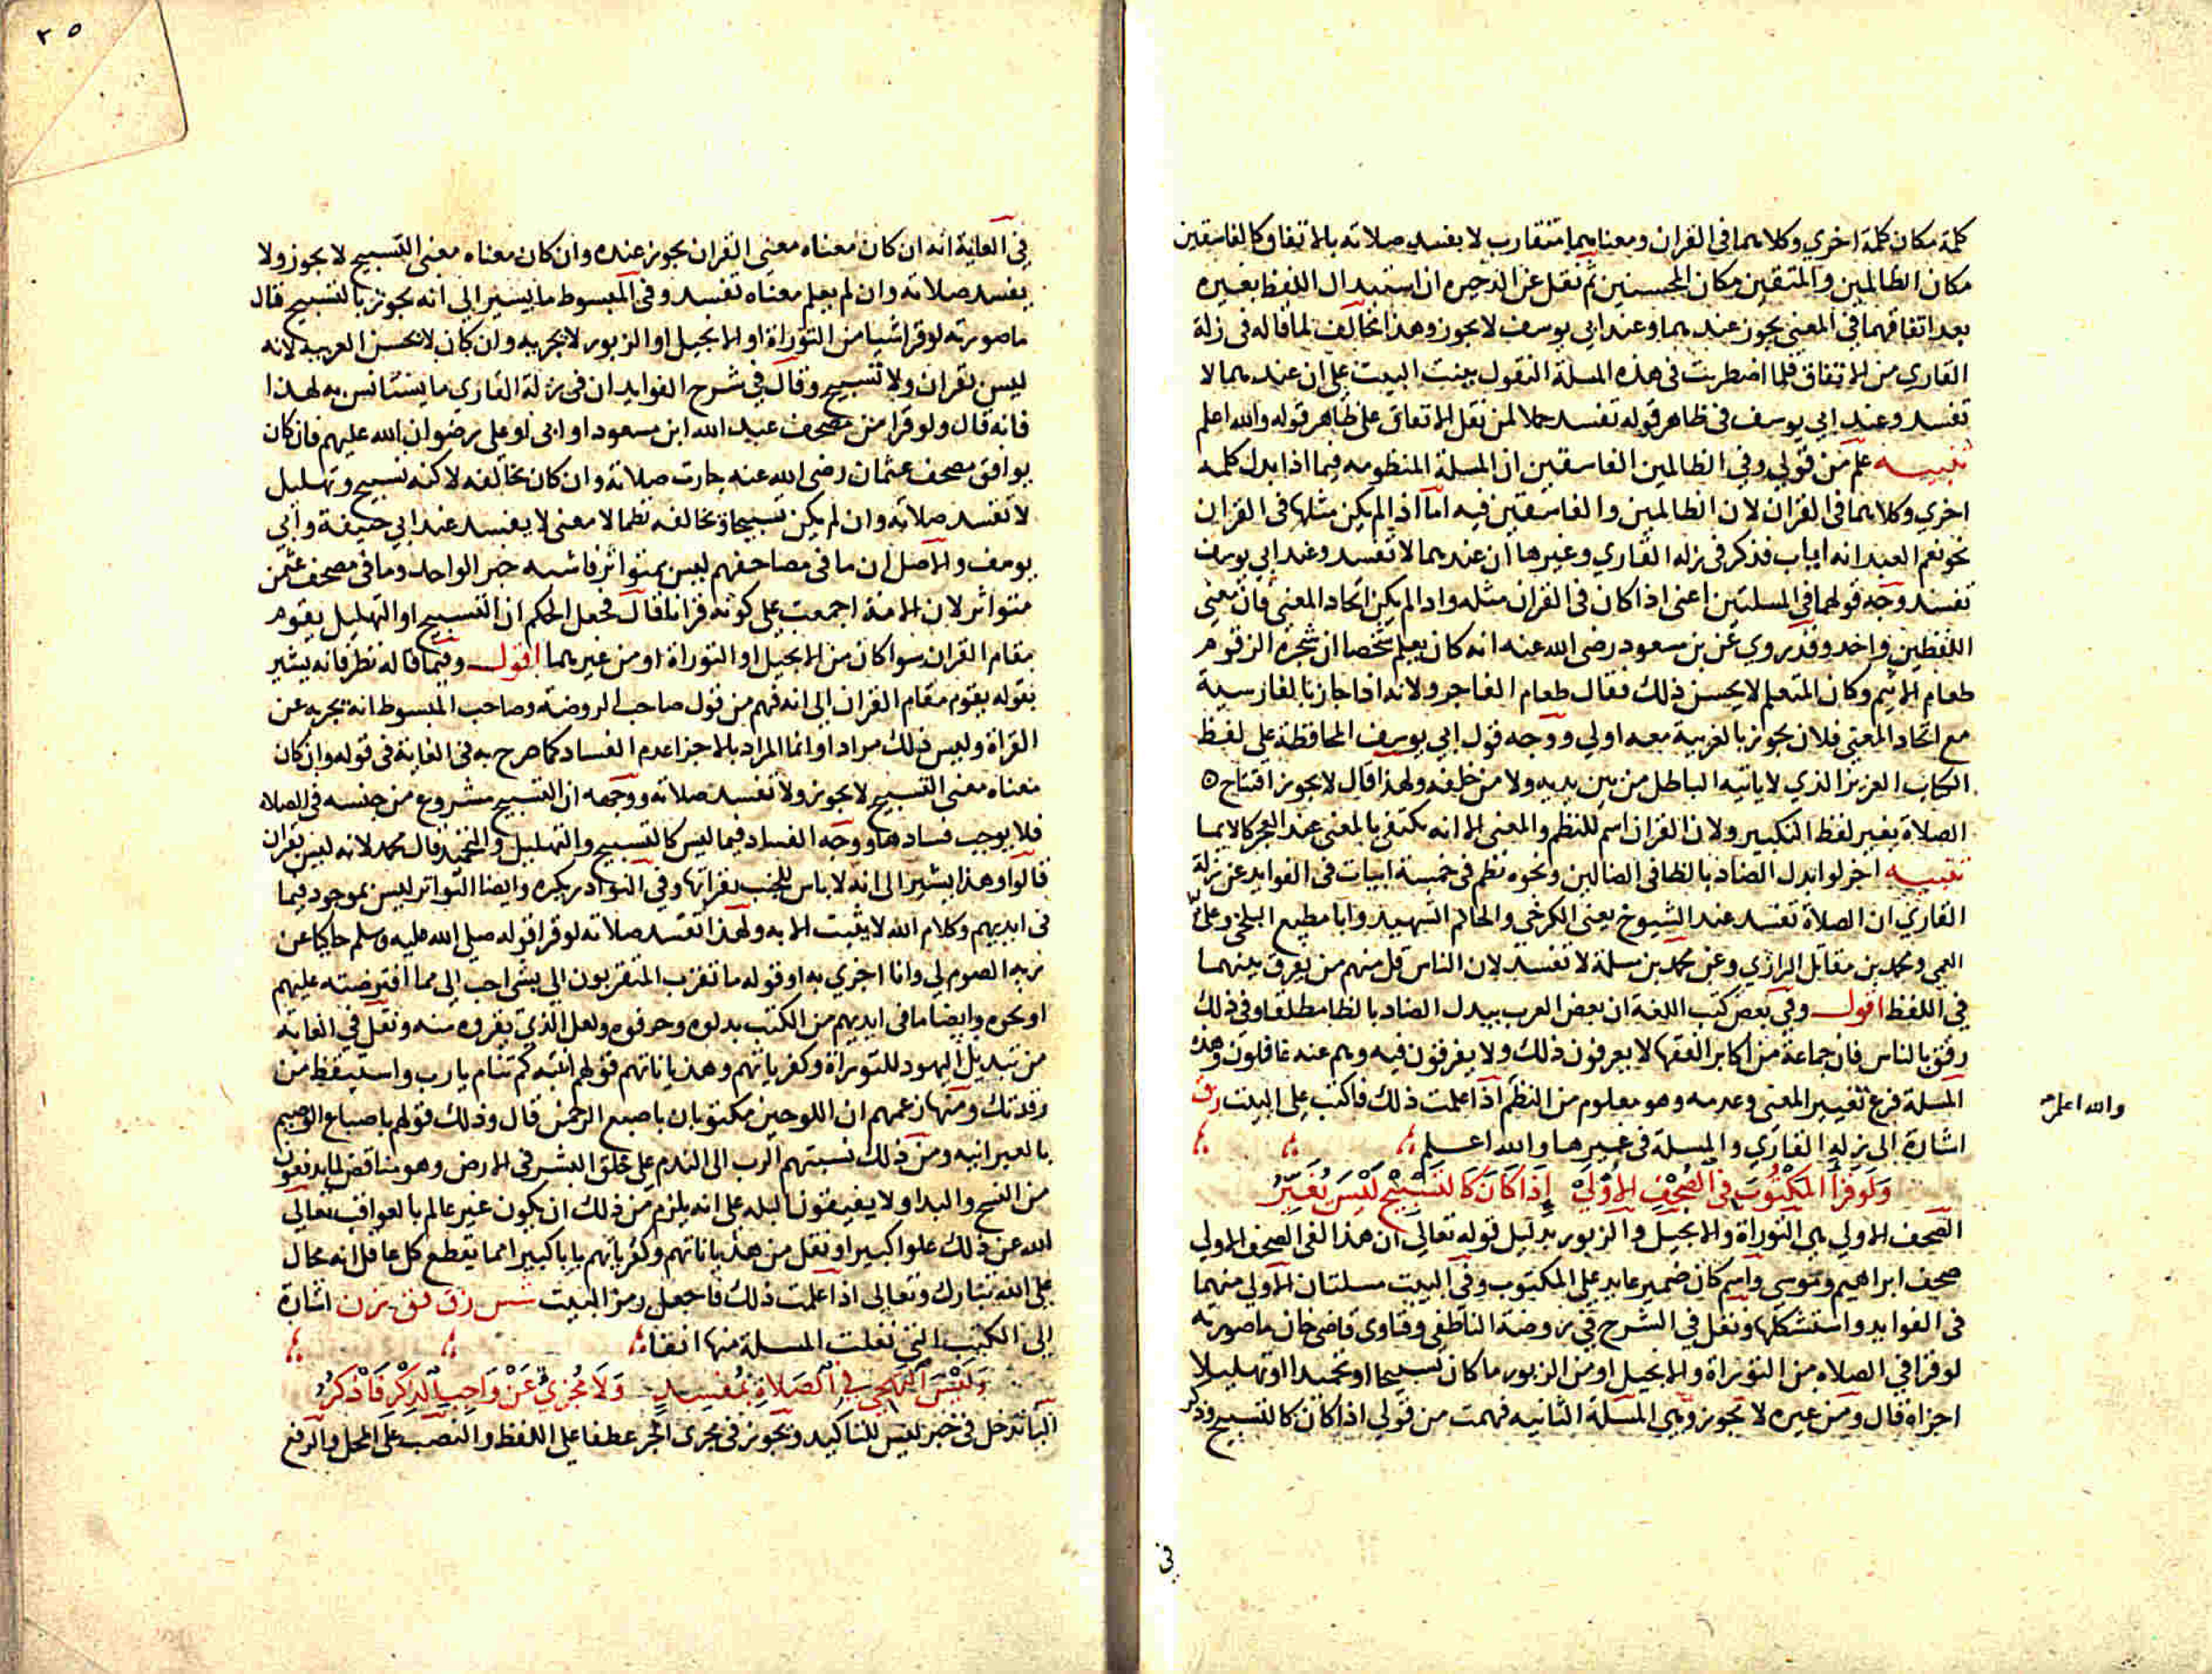 كلمة مكان كلمة اخري وكلاهما في القران ومعناهما متقارب لا يفسد صلاته بالاتفاق كالفاسقين
مكان الظالمين والمتقين مكان المحسنين ثم نقل عن الذخيره ان استبدال اللفظ بغيره
بعد اتفاقهما في المعني يجوز عندهما وعند ابي يوسف لا يجوز وهذا مخالف لما قاله في زلة
القاري من الاتفاق فلما اضطربت في هذه المسلة النقول بينت البيت علي ان عندهما لا
تفسد وعند ابي يوسف في ظاهر قوله تفسد حملا لمن نقل الاتفاق على ظاهر قوله والله اعلم
تنبيه علم من قولي وفي الظالمين الفاسقين ان المسلة المنظومه فيما اذا بدل كلمه
اخري وكلاهما في القران لان الظالمين والفاسقين فيه اما اذا لم يكن مثلها في القران
نحو نعم العبد انه اياب فذكر في زله القاري وغيرها ان عندهما لا تفسد وعند ابي يوسف
تفسد وجه قولهما في المسلتين اعني اذا كان في القران مثله واذا لم يكن اتحاد المعني فان معني
اللفظين واحد وقد روي عن بن مسعود رضي الله عنه انه كان يعلم شخصا ان شجرة الزقوم
طعام الاثيم وكان المتعلم لا يحسن ذلك فقال طعام الفاجر ولانه اذا جاز بالفارسية
مع اتحاد المعني فلان يجوز بالعربية معه اولي ووجه قول ابي يوسف المحافظة علي لفظ
الكتاب العزيز الذي لا ياتيه الباطل من بين يديه ولا من خلفه ولهذا قال لا يجوز افتتاح ه
الصلاة بغير لفظ التكبير ولان القران اسم للنظم والمعني الا انه يكتفي بالمعني عند العجز كالايما
تنبيه اخر لو ابدل الضاد بالظا في الضالين ونحوه نظم في خمسة ابيات في الفوايد عن زلة
القاري ان الصلاة تفسد عند الشيوخ يعني الكرخي والحاكم الشهيد وابا مطيع البلخي وعلي
العمي ومحمد بن مقاتل الرازي وعن محمد بن سلمة لا تفسد لان الناس قل منهم من يفرق بينهما
في اللفظ اقول وفي بعض كتب اللغة ان بعض العرب يبدل الضاد بالظا مطلقا وفي ذلك
رفق بالناس فان جماعة من اكابر الفقها لا يعرفون ذلك ولا يفرقون فيه وهم عنه غافلون وهذه
المسلة فرع تغيير المعني وعدمه وهو معلوم من النظم اذا علمت ذلك فاكتب علي البيت زق
والله اعلم
اشارة الى زلة القاري والمسلة في غيرها والله اعلم
وَلَو قرأ المكتوبَ في الصُحْفِ الاُوْلَي إذا كَانَ كَالتَسْبِيْحِ لَيْسَ يُغَيِّرُ
الصحف الاولي هي التوراة والانجيل والزبور بدليل قوله تعالي ان هذا لفي الصحف الاولي
صحف ابراهيم وموسي واسم كان ضمير عايد علي المكتوب وفي البيت مسلتان الاولي منهما
في الفوايد واستشكلها ونقل في الشرح في روضة الناطفي وفتاوي قاضي خان ما صورته
لو قرا في الصلاه من التوراة والانجيل او من الزبور ما كان تسبيحا او تحميدا او تهليلا
اجزاه قال ومن غيره لا يجوز وهي المسلة الثانيه فهمت من قولي اذا كان كالتسبيح وذكر
في
٣٥
في الغاية انه ان كان معناه معني القران يجوز عنده وان كان معناه معني التسبيح لا يجوز ولا
يفسد صلاته وان لم يعلم معناه تفسد وفي المبسوط ما يشير الي انه يجوز بالتسبيح قال
ما صورته لو قرا شيا من التوراة او الانجيل او الزبور لا يجزيه وان كان لا يحسن العربيه لانه
ليس بقران ولا تسبيح وقال في شرح الفوايد ان في زلة القاري ما يستانس به لهذا
فانه قال ولو قرا من مصحف عبد الله ابن مسعود او ابي او علي رضوان الله عليهم فان كان
يوافق مصحف عثمان رضي الله عنه جازت صلاته وان كان يخالفه لاكنه تسبيح وتهليل
لا تفسد صلاته وان لم يكن تسبيحا ويخالفه نظما لا معني لا يفسد عند ابي حنيفة وابي
يوسف والاصل ان ما في مصاحفهم ليس بمتواتر فاشبه خبر الواحد وما في مصحف عثمن
متواتر لان الامة اجمعت علي كونه قرانا قال فجعل الحكم ان التسبيح او التهليل يقوم
مقام القران سوا كان من الانجيل او التوراة او من غيرهما اقول وفيما قاله نظر فانه يشير
بقوله يقوم مقام القران الى انه فهم من قول صاحب الروضة وصاحب المبسوط انه يجزيه عن
القراة وليس ذلك مرادا وانما المراد بالاجزا عدم الفساد كما صرح به في الغاية في قوله وان كان
معناه معني التسبيح لا يجوز ولا تفسد صلاته ووجهه ان التسبيح مشروع من جنسه في الصلاه
فلا يوجب فسادها ووجه الفساد فيما ليس كالتسبيح والتهليل والتحميد قال محمد لانه ليس بقران
قالوا وهذا يشير الى انه لا باس للجنب بقراتها وفي النوادر يكره وايضا التواتر ليس بموجود فيما
في ايديهم وكلام الله لا يثبت الا به ولهذا تفسد صلاته لو قرا قوله صلي الله عليه وسلم حاكيا عن
ربه الصوم لي وانا اجزي به او قوله ما تقرب المتقربون الي بشي احب الي مما افترضته عليهم
او نحوه وايضا ما في ايديهم من الكتب بدلوه وحرفوه ولعل الذي يقروه منه ونقل في الغاية
من تبديل اليهود للتوراة وكفرياتهم وهذياناتهم قولهم انتبه كم تنام يارب واستيقظ من
رقدتك ومنها زعمهم ان اللوحين مكتوبان باصبع الرحمن قال وذلك قولهم باصباع الوهيم
بالعبرانيه ومن ذلك نسبتهم الرب الى الندم علي خلق البشر في الارض وهو مناقض لما يدعون
من النسخ والبدا ولا يفيقون البله علي انه يلزم من ذلك ان يكون غير عالم بالعواقب تعالي
الله عن ذلك علوا كبيرا ونقل من هذياناتهم وكفرياتهم بابا كبيرا مما يقطع كل عاقل انه محال
علي الله تبارك وتعالى اذا علمت ذلك فاجعل رمز البيت شس زق فق زن اشارة
الى الكتب التي نقلت المسلة منها انفا
وَلَيْسَ التَهَجِّي في الصَلاةِ بمُفْسِدٍ وَلَا مُجْزِئٌ عَنْ وَاجِبِ الذِكْرِ فَاذْكُرُوا
البا تدخل في خبر ليس للتاكيد ويجوز في مجزي الجر عطفا علي اللفظ والنصب على المحل والرفع